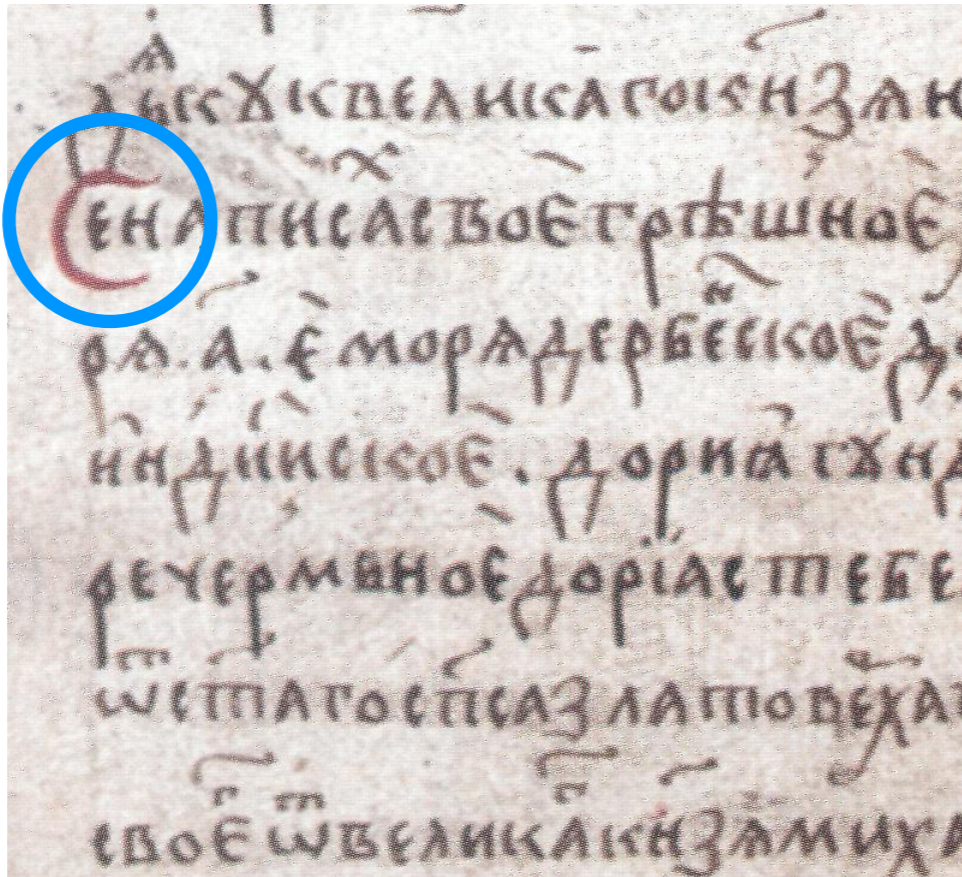 дьекꙋквеликагокнꙁѧн
Сенаписаⷯсвоєгрѣшноє
рѧ.а.є морѧдербеⷩскоєдо
индийскоє.дориѧгꙋнд
речермьноєдоріастебе
ѿстагоспсаꙁлатовеха
своєⷢѿвеликаⷢкнꙁѧмиха